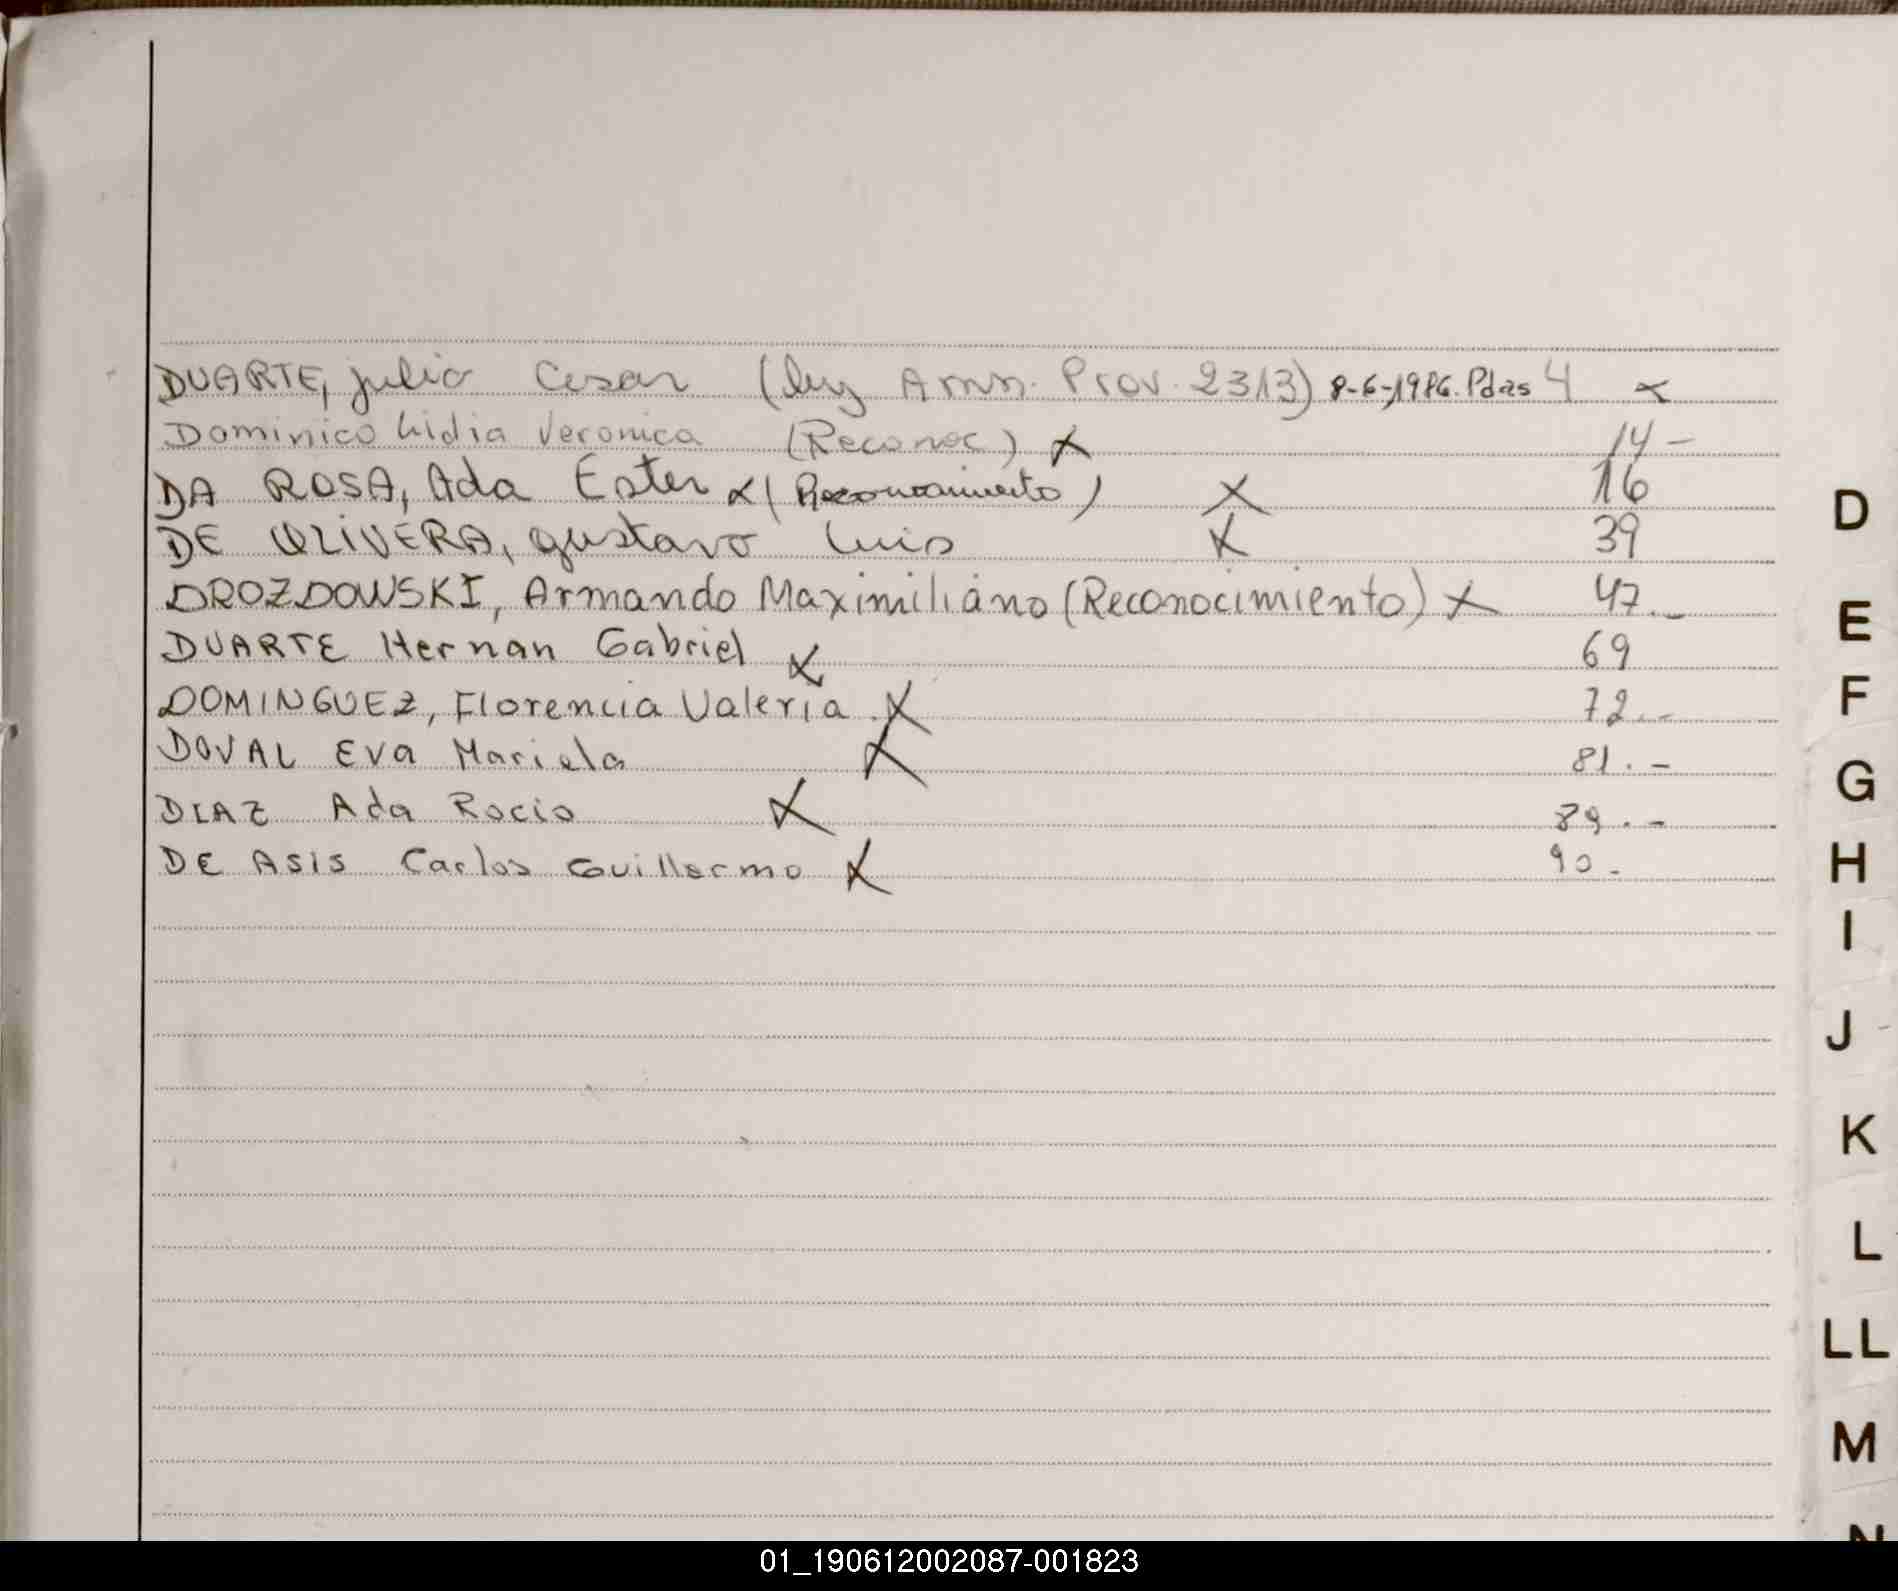 DUARTE, Julio Cesar (ley Amn. Prov. 2313) 8-6-1986. Pdas 4 x
Dominico Lidia Veronica (Reconoc) x 14 -
DA ROSA, Ada Ester x (Reconocimiento) x 16
DE OLIVERA, Gustavo Luis x 39
DROZDOWSKI, Armando Maximiliano (Reconocimiento) x 47.-
DUARTE Hernan Gabriel x 69
DOMINGUEZ, Florencia Valeria. x 72.-
DOVAL Eva Mariela x 81.-
DIAZ Ada Rocio x 89.-
DE ASIS Carlos Guillermo x 90.-
D
E
F
G
H
I
J
K
L
LL
M
N
01_190612002087-001823